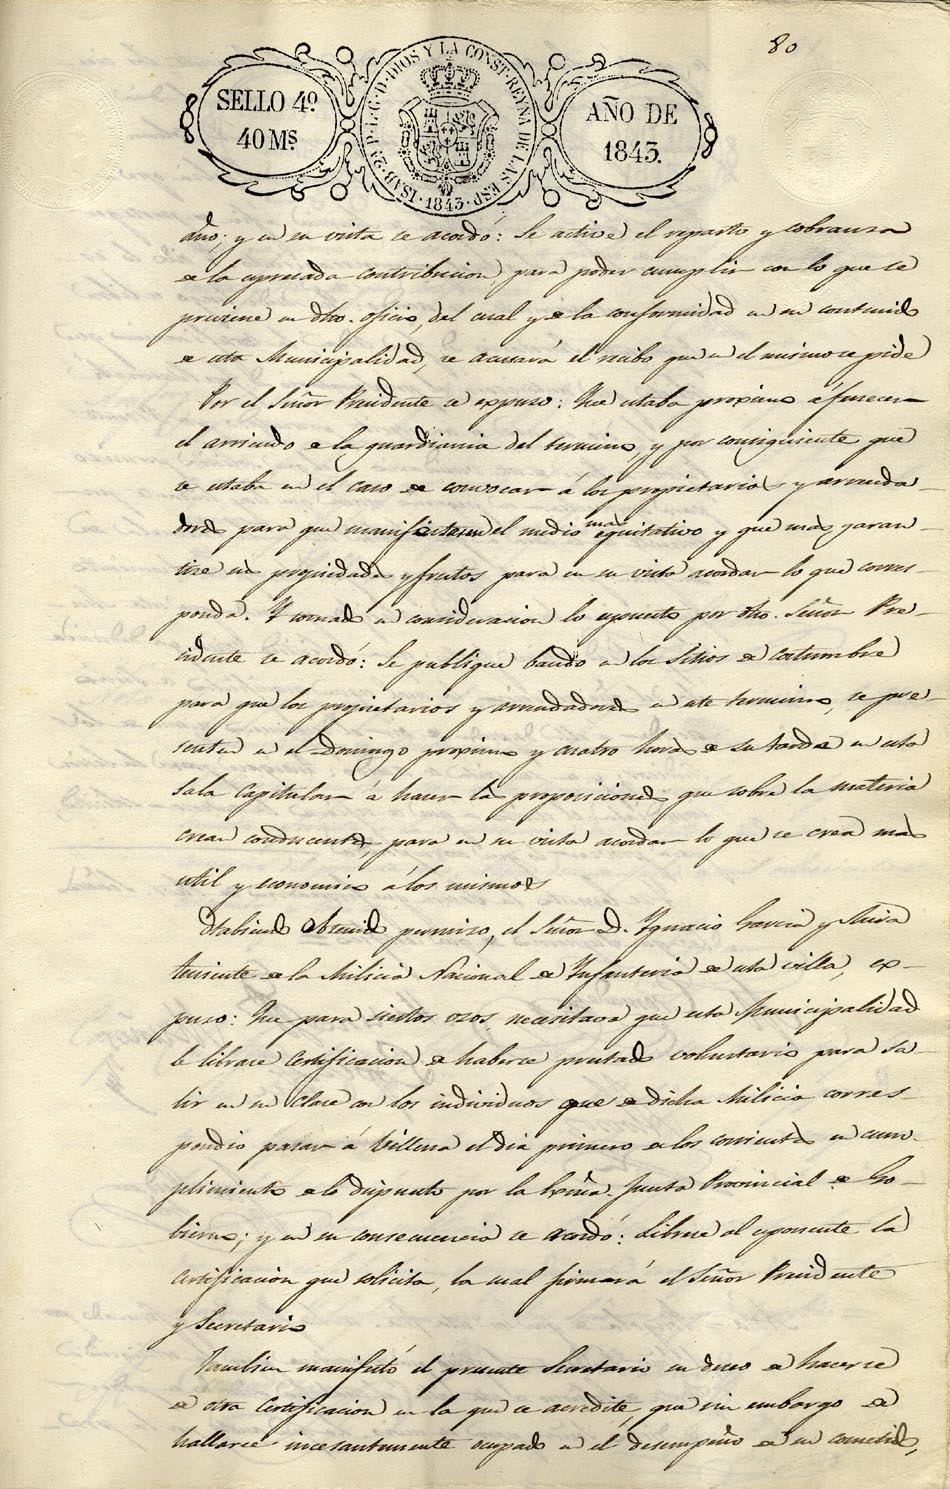 80
SELLO 4º
40 Mˢ
ISAB. 2ª P. L. G. D. DIOS Y LA CONST. REYNA DE LAS ESP. 1843.
AÑO DE
1843.
año; y en su vista se acordó: Se active el reparto y cobranza
de la espresada contribucion, para poder cumplir con lo que se
previene en dho. oficio, del cual y de la conformidad en su contenido
de esta Municipalidad, se acusará el recibo que en el mismo se pide
Por el Señor Presidente se expuso: Que estaba proximo á fenecer
el arriendo de la guardiania del termino, y por consiguiente que
se estaba en el caso de convocar á los propietarios y arrenda-
dores para que manifiesten el medio mas equitativo y que mas garan-
tize sus propiedades y frutos para en su vista acordar lo que corres-
ponda. Y tomado en consideracion lo espuesto por dho. Señor Pre-
sidente se acordó: Se publique bando en los Sitios de costumbre
para que los propietarios y arrendadores en este termino, se pre-
senten en el Domingo proximo y cuatro horas de su tarde en esta
Sala Capitular á hacer las proposiciones que sobre la materia
crean conducentes, para en su vista acordar lo que se crea mas
util y economico á los mismos
Habiendo obtenido permiso, el Señor D. Ygnacio Garcia y
teniente de la Milicia Nacional de Ynfanteria de esta villa, ex-
puso: Que para ciertos usos, necesitava que esta Municipalidad
le librace Certificacion de haberse prestado voluntario para sa-
lir en su clase con los individuos que de dicha Milicia corres-
pondio pasar á Villena el dia primero de los corrientes en cum-
plimiento de lo dispuesto por la Exma. Junta Provincial de Go-
bierno; y en su consecuencia se acordó: Librese al esponente la
Certificacion que solicita, la cual firmará el Señor Presidente
y Secretario
Tambien manifestó el presente Secretario su deseo de hacerse
de otra Certificacion en la que se acredite, que sin embargo de
hallarse incesantemente ocupado en el desempeño de su cometido,